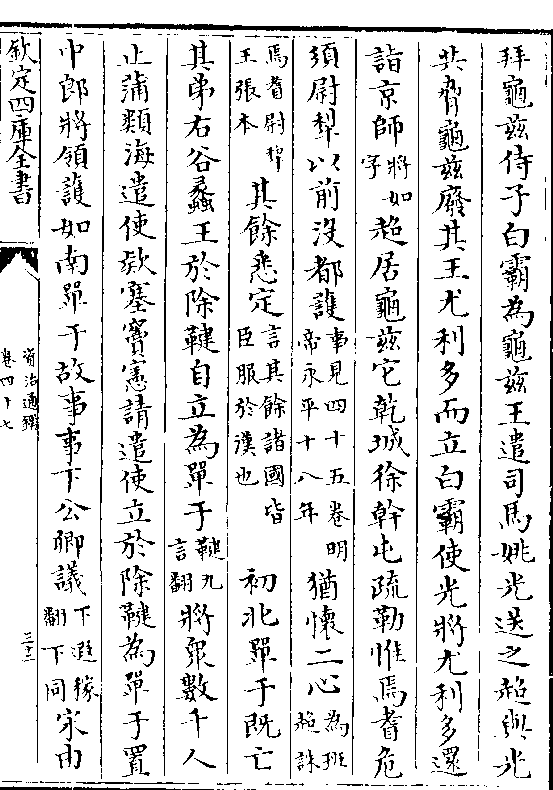 拜龜茲侍子白霸為龜茲王遣司馬姚光送之超與光
共脅龜茲廢其王尤利多而立白霸使光將尤利多還
詣京師將如字超居龜茲它乾城徐幹屯疏勒惟焉耆危
須尉犁以前沒都護事見四十五卷明帝永平十八年猶懷二心為班超誅
焉耆尉犁王張本其餘悉定言其餘諸國皆臣服於漢也初北單于既亡
其弟右谷蠡王於除鞬自立為單于鞬九言翻將衆數千人
止蒲類海遣使欵塞竇憲請遣使立於除鞬為單于置
中郎將領護如南單于故事事下公卿議下遐稼翻下同宋由
欽定四庫全書
資治通鑑
卷四十七
三十二